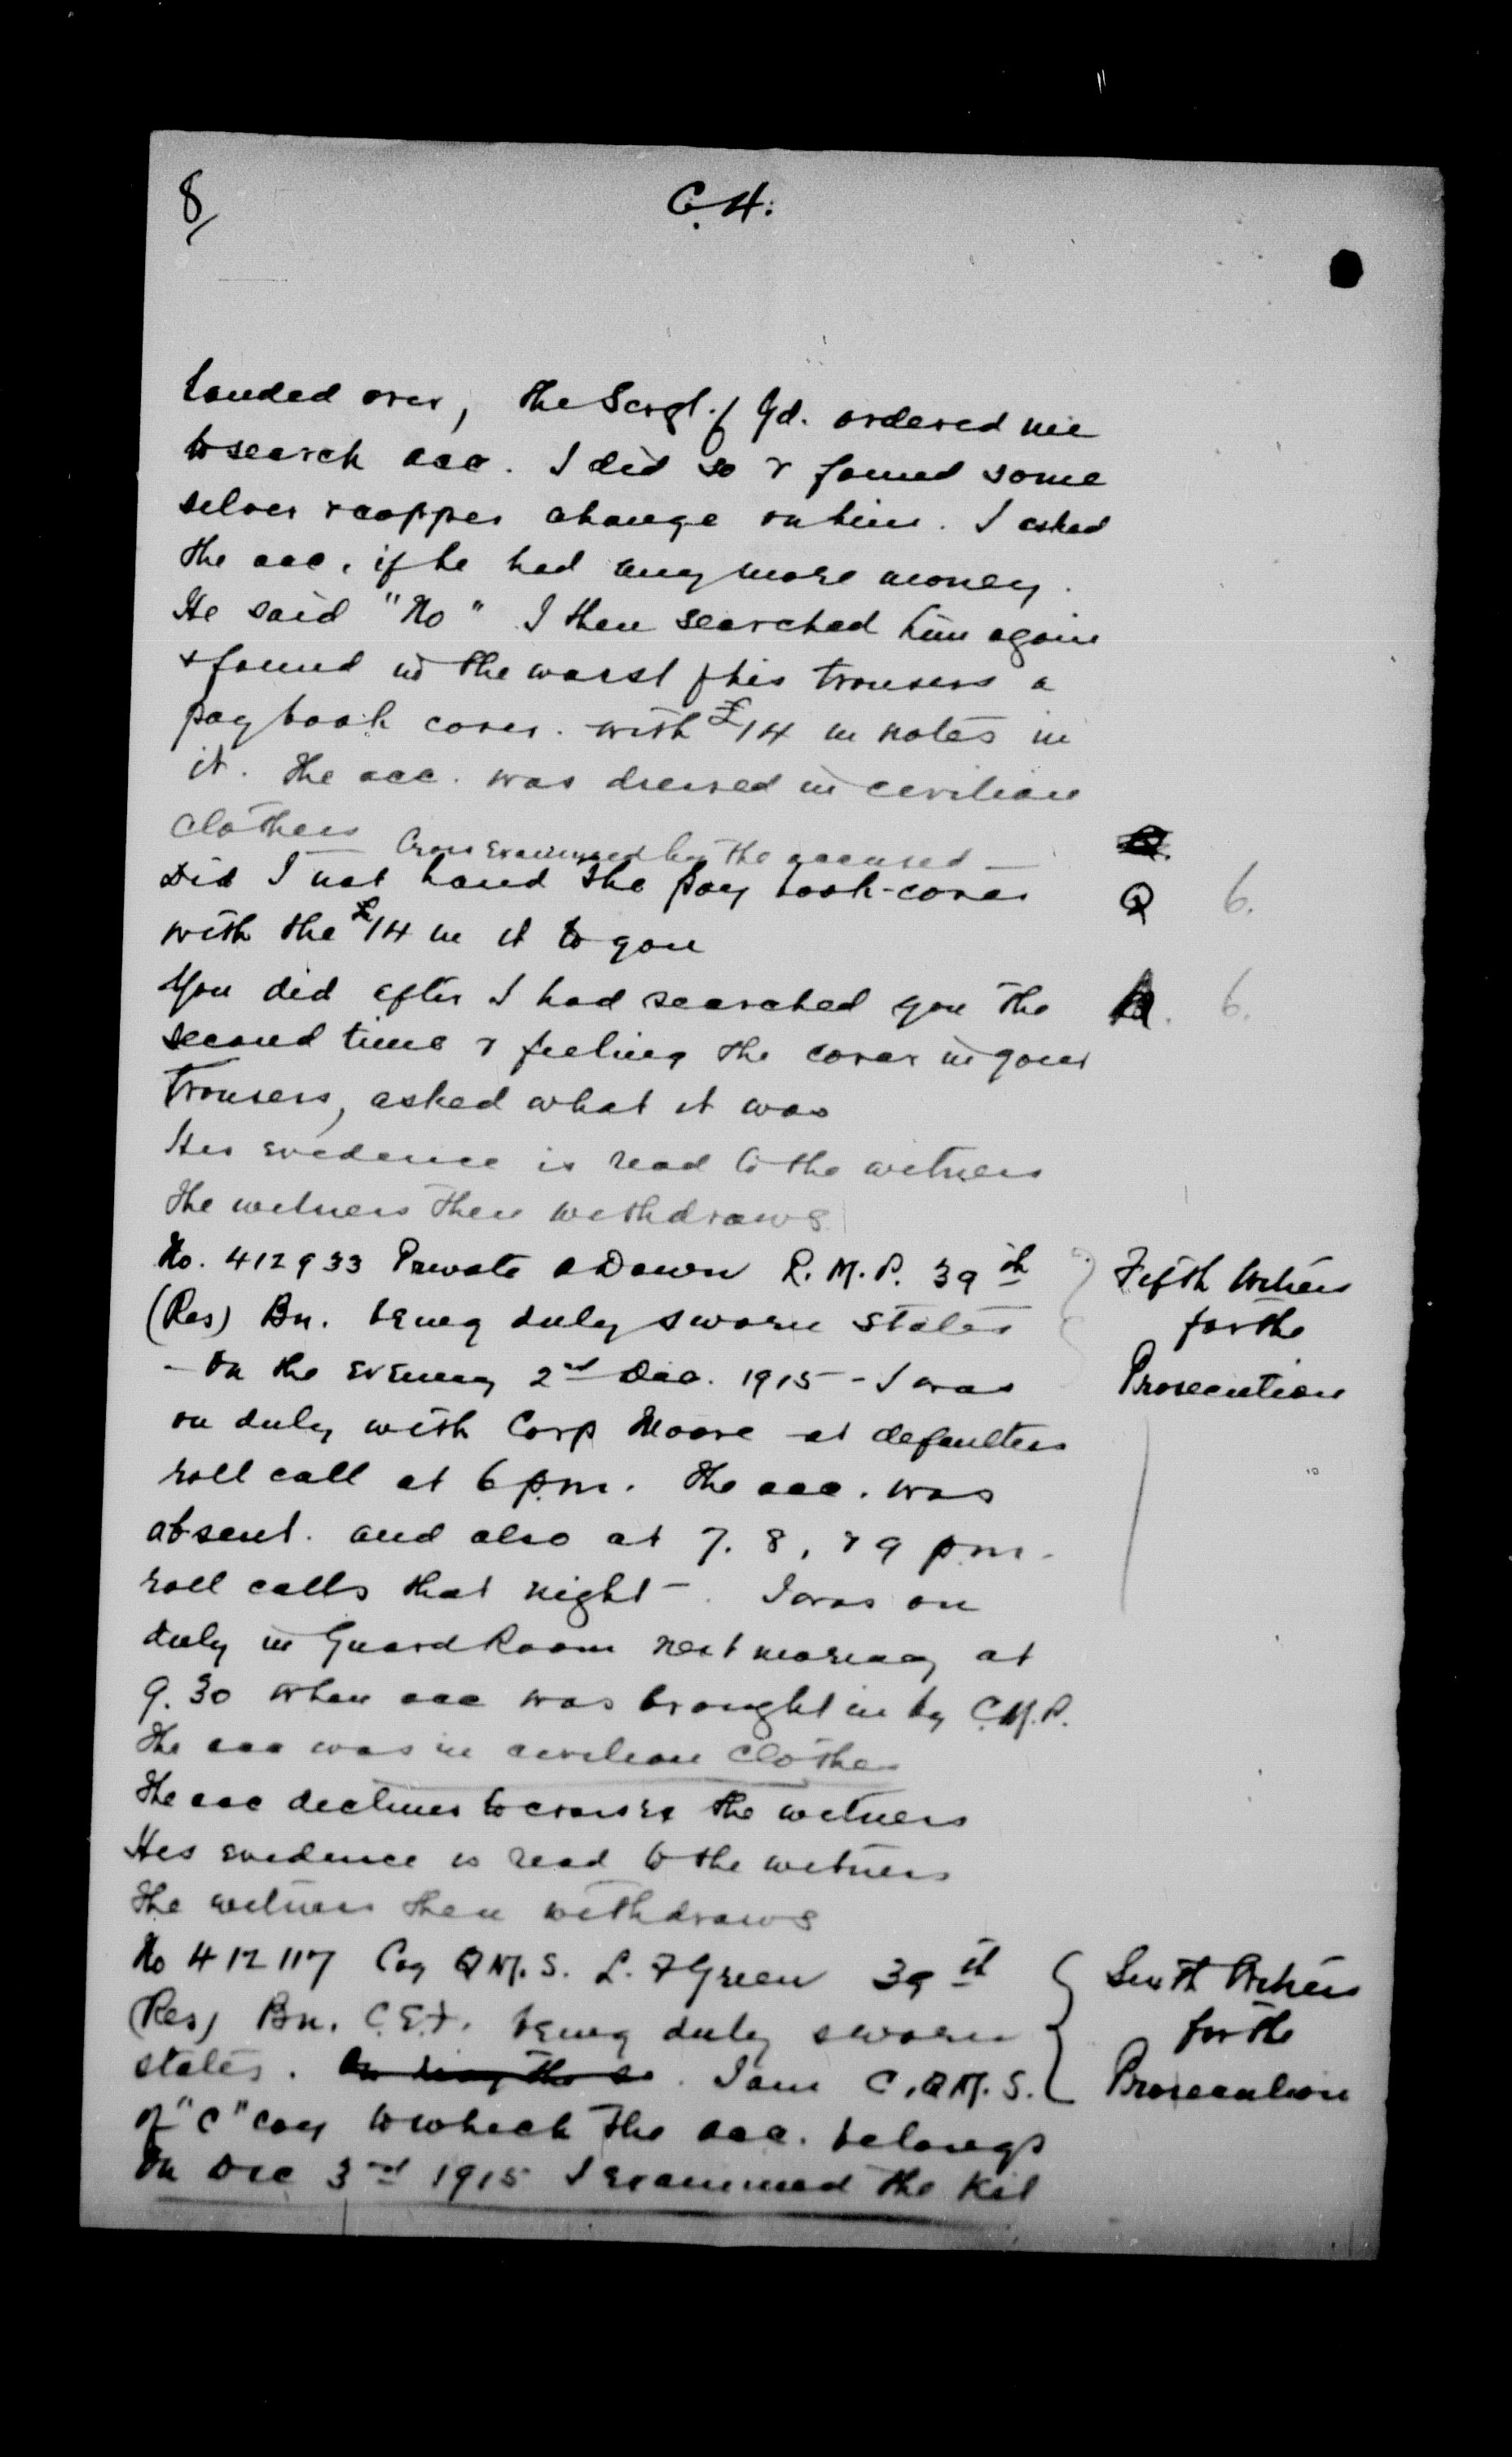 8/
C.H.
handed over, the Sergt. of Gd. ordered me
to search acc. I did so & found some
silver & copper change on him. I asked
the acc. if he had any more money.
He said "No" I then searched him again
& found in the waist of his trousers a
pay book cover. with £14 in notes in
it. The acc. was dressed in civilian
clothes
Cross examined by the accused —
Did I not hand the pay book-cover
Q 6.
with the £14 in it to you
You did after I had searched you the
A. 6.
second time & feeling the cover in your
trousers, asked what it was
His evidence is read to the witness
The witness then withdraws
No. 412933 Private A Dawn R.M.P. 39th
Fifth Witness
(Res) Bn. being duly sworn states
for the
- On the evening 2nd Dec. 1915 - I was
Prosecution
on duty with Corp Moore at defaulters
roll call at 6 p.m. The acc. was
absent. and also at 7. 8, & 9 p.m.
roll calls that night -. I was on
duty in Guard Room next morning at
9.30 when acc was brought in by C.M.P.
The acc was in civilian clothes
The acc declines to cross ex the witness
His evidence is read to the witness
The witness then withdraws
No 412117 Coy Q.M.S. L. F Green 39th
Sixth Witness
(Res) Bn. C.E.F. being duly sworn
for the
states. I am C.Q.M.S.
Prosecution
of "C" coy to which the acc. belongs
On Dec 3rd 1915 I examined the kit